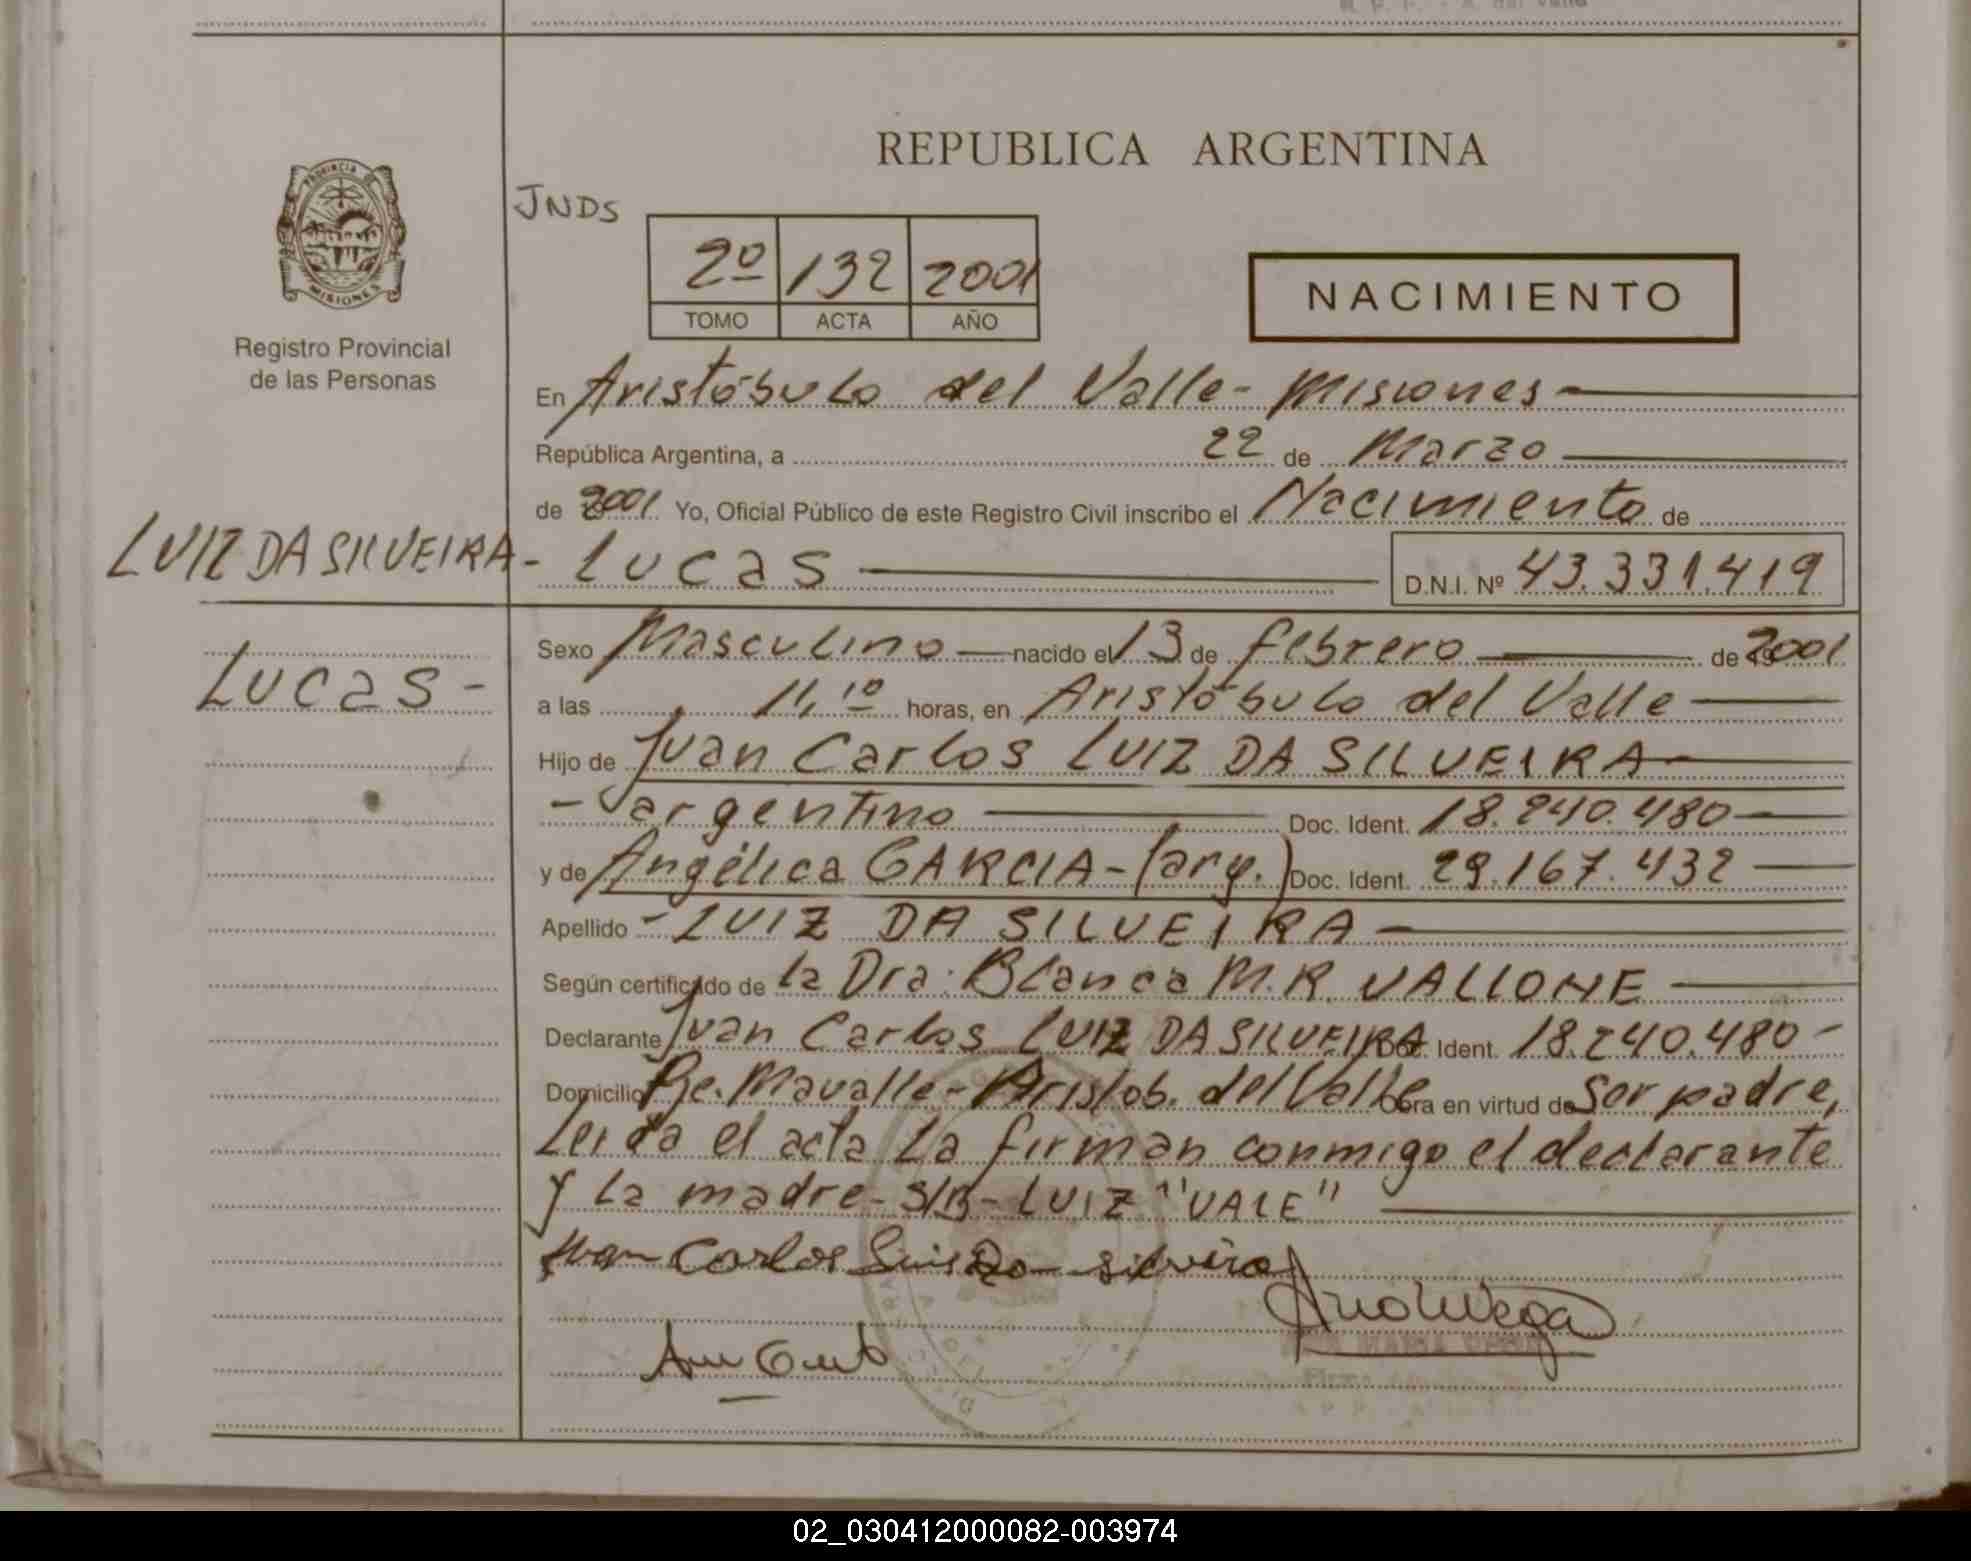 REPUBLICA ARGENTINA
PROVINCIA DE
MISIONES
Registro Provincial
de las Personas
JNDS
2º 132 2001
TOMO ACTA AÑO
NACIMIENTO
En Aristóbulo del Valle - Misiones
República Argentina, a 22 de Marzo
de 2001 Yo, Oficial Público de este Registro Civil inscribo el Nacimiento de
LUIZ DA SILVEIRA - Lucas
D.N.I. Nº 43.331.419
Lucas -
Sexo Masculino nacido el 13 de febrero de 2001
a las 11,10 horas, en Aristóbulo del Valle
Hijo de Juan Carlos LUIZ DA SILVEIRA
- argentino Doc. Ident. 18.240.480
y de Angélica GARCIA - (arg.) Doc. Ident. 29.167.432
Apellido - LUIZ DA SILVEIRA
Según certificado de la Dra. Blanca M.R. VALLONE
Declarante Juan Carlos LUIZ DA SILVEIRA Doc. Ident. 18.240.480 -
Domicilio Mavalle - Aristob. del Valle Obra en virtud de Ser padre,
Leida el acta la firman conmigo el declarante
y la madre - S/B - LUIZ "VALE"
Juan Carlos Luis Da silveira
02_030412000082-003974